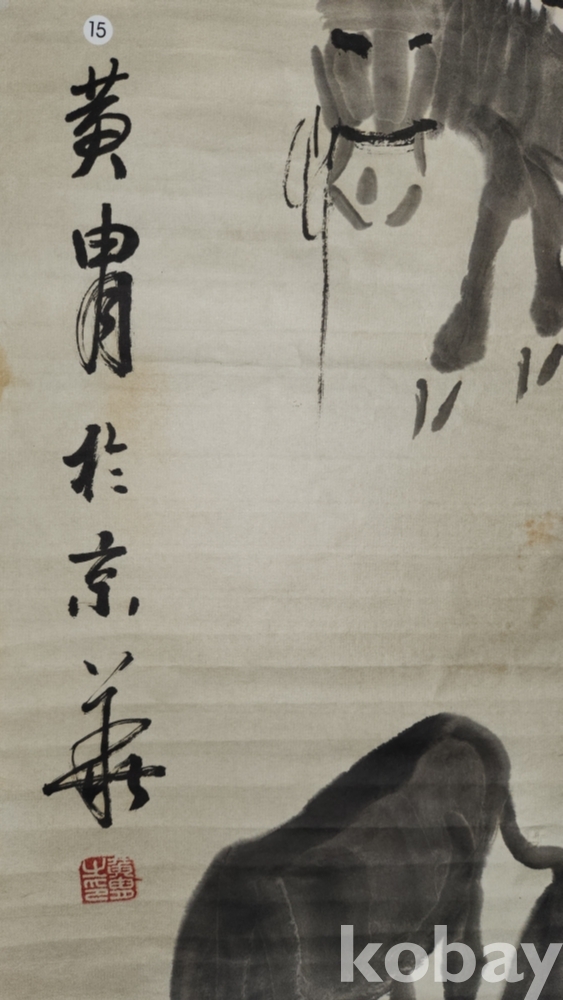 15
黄胄於京華
黄胄之印
kobay